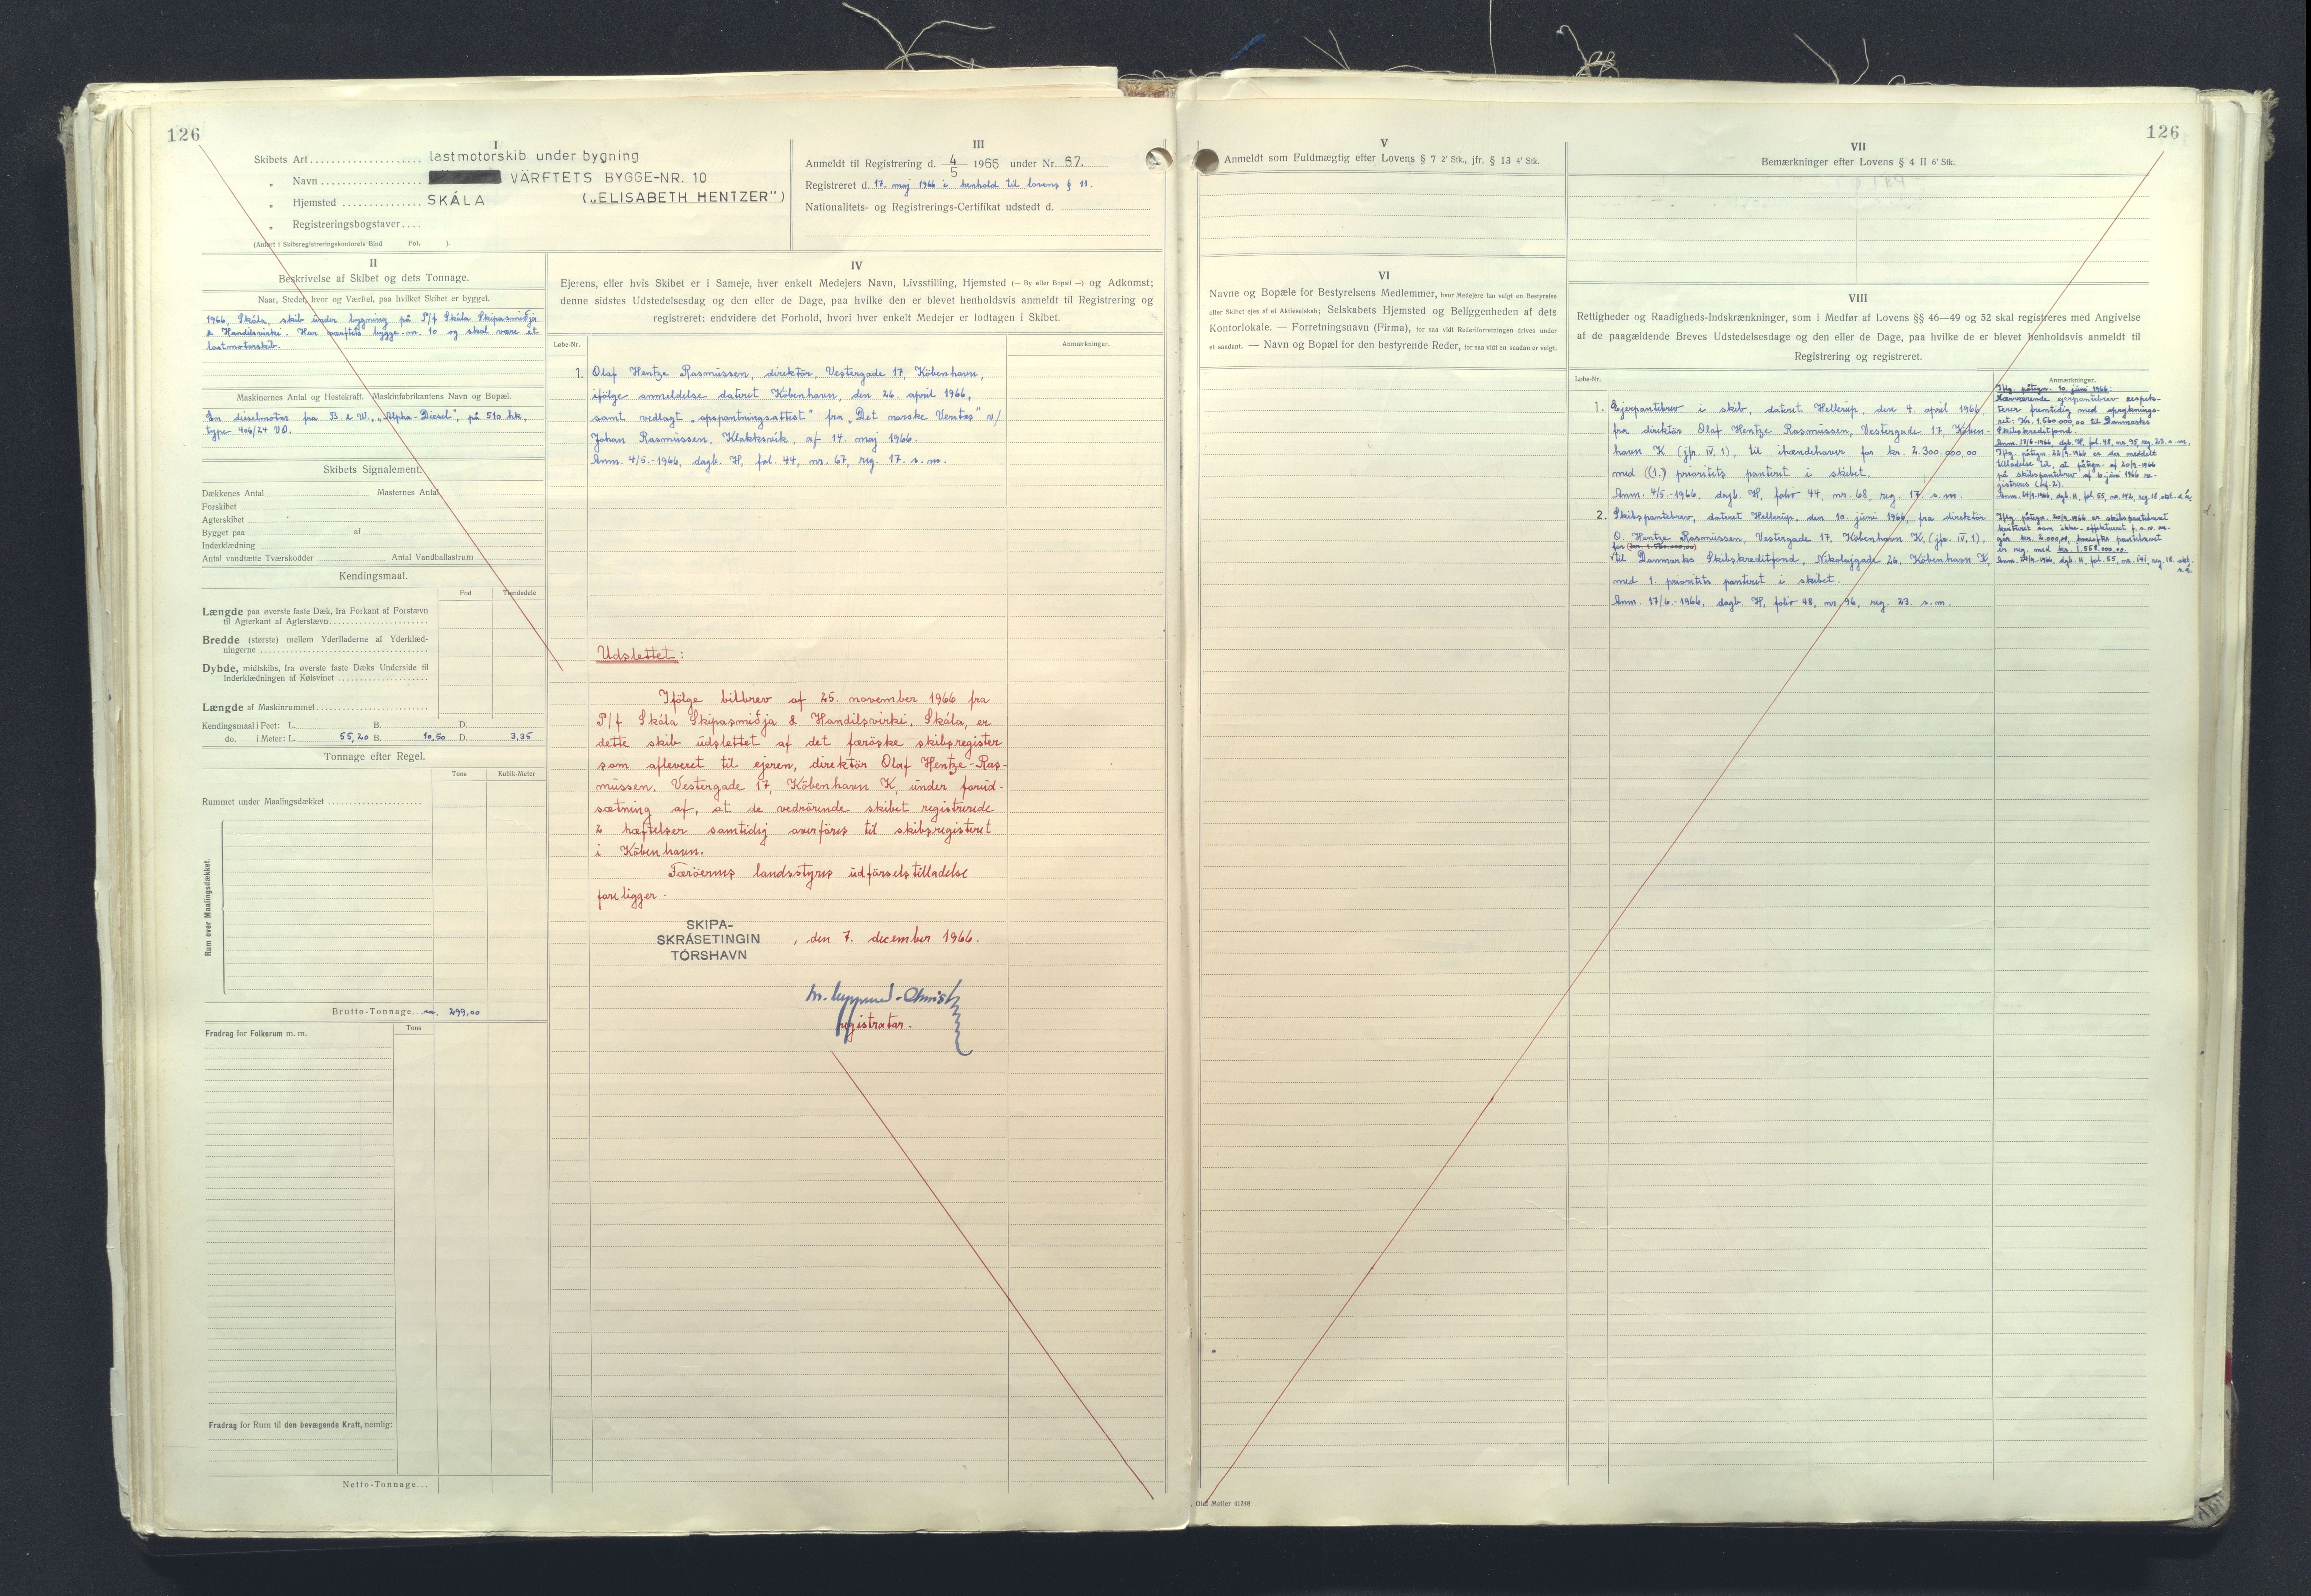 126
I
Skibets Art .................... lastmotorskib under bygning
„ Navn .................... VÄRFTETS BYGGE-NR. 10
„ Hjemsted ............... SKÁLA („ELISABETH HENTZER")
„ Registreringsbogstaver....
(Anført i Skibsregistreringskontorets Bind Fol. ).
III
Anmeldt til Registrering d. 4/5 1966 under Nr. 67.
Registreret d. 17. maj 1966 i henhold til lovens § 11.
Nationalitets- og Registrerings-Certifikat udstedt d.
II
Beskrivelse af Skibet og dets Tonnage.
Naar, Stedet, hvor og Værftet, paa hvilket Skibet er bygget.
1966, Skála, skib under bygning på P/f Skála Skipasmiðja
& Handilsvirki. Har værftets bygge-nr. 10 og skal være et
lastmotorskib.
Maskinernes Antal og Hestekraft. Maskinfabrikantens Navn og Bopæl.
En dieselmotor fra B. & W., „Alpha-Diesel", på 510 hk,
type 406/24 VO.
Skibets Signalement.
Dækkenes Antal Masternes Antal
Forskibet
Agterskibet
Bygget paa af
Inderklædning
Antal vandtætte Tværskodder Antal Vandballastrum
Kendingsmaal.
Fod Tiendedele
Længde paa øverste faste Dæk, fra Forkant af Forstævn
til Agterkant af Agterstævn
Bredde (største) mellem Yderfladerne af Yderklæd-
ningerne
Dybde, midtskibs, fra øverste faste Dæks Underside til
Inderklædningen af Kølsvinet
Længde af Maskinrummet
Kendingsmaal i Feet: L. B. D.
do. i Meter: L. 55,20 B. 10,50 D. 3,35
Tonnage efter Regel.
Tons Kubik-Meter
Rummet under Maalingsdækket
Rum over Maalingsdækket.
Brutto-Tonnage... ca. 299,00
Fradrag for Folkerum m. m.
Tons
Fradrag for Rum til den bevægende Kraft, nemlig:
Netto-Tonnage...
IV
Ejerens, eller hvis Skibet er i Sameje, hver enkelt Medejers Navn, Livsstilling, Hjemsted (— By eller Bopæl —) og Adkomst;
denne sidstes Udstedelsesdag og den eller de Dage, paa hvilke den er blevet henholdsvis anmeldt til Registrering og
registreret; endvidere det Forhold, hvori hver enkelt Medejer er lodtagen i Skibet.
Løbe-Nr. Anmærkninger.
1. Olaf Hentze Rasmussen, direktör, Vestergade 17, Köbenhavn,
ifölge anmeldelse dateret Köbenhavn, den 26. april 1966,
samt vedlagt „opspantningsattest" fra „Det norske Veritas" v/
Johan Rasmussen, Klakksvik, af 14. maj 1966.
Anm. 4/5.-1966, dagb. H, fol. 44, nr. 67, reg. 17. s. m.
Udslettet:
Ifölge bilbrev af 25. november 1966 fra
P/f Skála Skipasmiðja & Handilsvirki, Skála, er
dette skib udslettet af det færöske skibsregister
som afleveret til ejeren, direktör Olaf Hentze-Ras-
mussen, Vestergade 17, Köbenhavn K, under forud-
sætning af, at de vedrörende skibet registrerede
2 hæftelser samtidig overföres til skibsregisteret
i Köbenhavn.
Færöernes landsstyres udförselstilladelse
foreligger.
SKIPA-
SKRÁSETINGIN
TÓRSHAVN
, den 7. december 1966.
registrator.
126
V
Anmeldt som Fuldmægtig efter Lovens § 7 2' Stk., jfr. § 13 4' Stk.
VII
Bemærkninger efter Lovens § 4 II 6' Stk.
VI
Navne og Bopæle for Bestyrelsens Medlemmer, hvor Medejere har valgt en Bestyrelse
eller Skibet ejes af et Aktieselskab; Selskabets Hjemsted og Beliggenheden af dets
Kontorlokale. — Forretningsnavn (Firma), for saa vidt Rederiforretningen drives under
et saadant. — Navn og Bopæl for den bestyrende Reder, for saa vidt en saadan er valgt.
VIII
Rettigheder og Raadigheds-Indskrænkninger, som i Medfør af Lovens §§ 46—49 og 52 skal registreres med Angivelse
af de paagældende Breves Udstedelsesdage og den eller de Dage, paa hvilke de er blevet henholdsvis anmeldt til
Registrering og registreret.
Løbe-Nr. Anmærkninger.
1. Ejerpantebrev i skib, dateret Hellerup, den 4. april 1966,
fra direktör Olaf Hentze Rasmussen, Vestergade 17, Köben-
havn K (jfr. IV, 1), til ihændehaver for kr. 2.300.000,00
med (1.) prioritets panteret i skibet.
Anm. 4/5.-1966, dagb. H, folio 44, nr. 68, reg. 17. s. m.
2. Skibspantebrev, dateret Hellerup, den 10. juni 1966, fra direktör
O. Hentze Rasmussen, Vestergade 17, Köbenhavn K, (jfr. IV, 1),
for (kr. 1.560.000,00)
til Danmarks Skibskreditfond, Nikolajgade 26, Köbenhavn K,
med 1. prioritets panteret i skibet.
Anm. 17/6.-1966, dagb. H, folio 48, nr. 96, reg. 23. s. m.
Iflg. påtegn. 10. juni 1966:
Nærværende ejerpantebrev respek-
terer fremtidig med oprykning-
ret: Kr. 1.560.000,00 til Danmarks
Skibskreditfond.
Anm. 17/6-1966, dgb. H, fol. 48, nr. 95, reg. 23. s. m.
Iflg. påtegn. 22/9.1966 er der meddelt
tilladelse til, at påtegn. af 20/9-1966
på skibspantebrev af 10. juni 1966 re-
gistreres (lnf. 2).
Iflg. påtegn. 20/9.1966 er skibspantebrevet
går kr. 2.000,00, hvorefter pantebrevet
er reg. med kr. 1.558.000,00.
Møller 41248